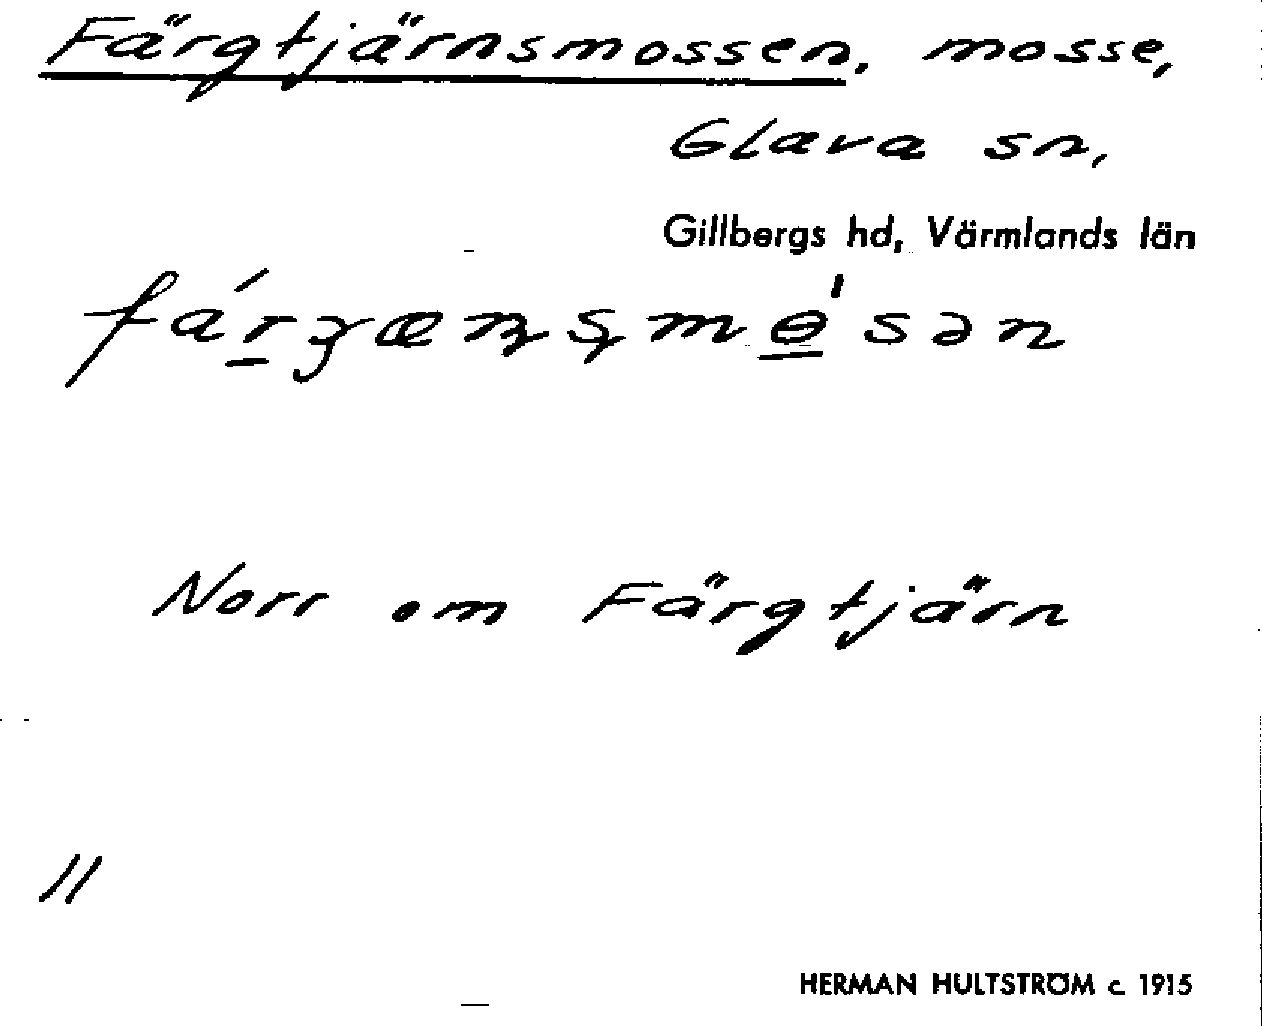 Färgtjärnsmossen, mosse,
Glava sn,
Gillbergs hd, Värmlands län
Norr om Färgtjärn
11
HERMAN HULTSTRÖM c. 1915